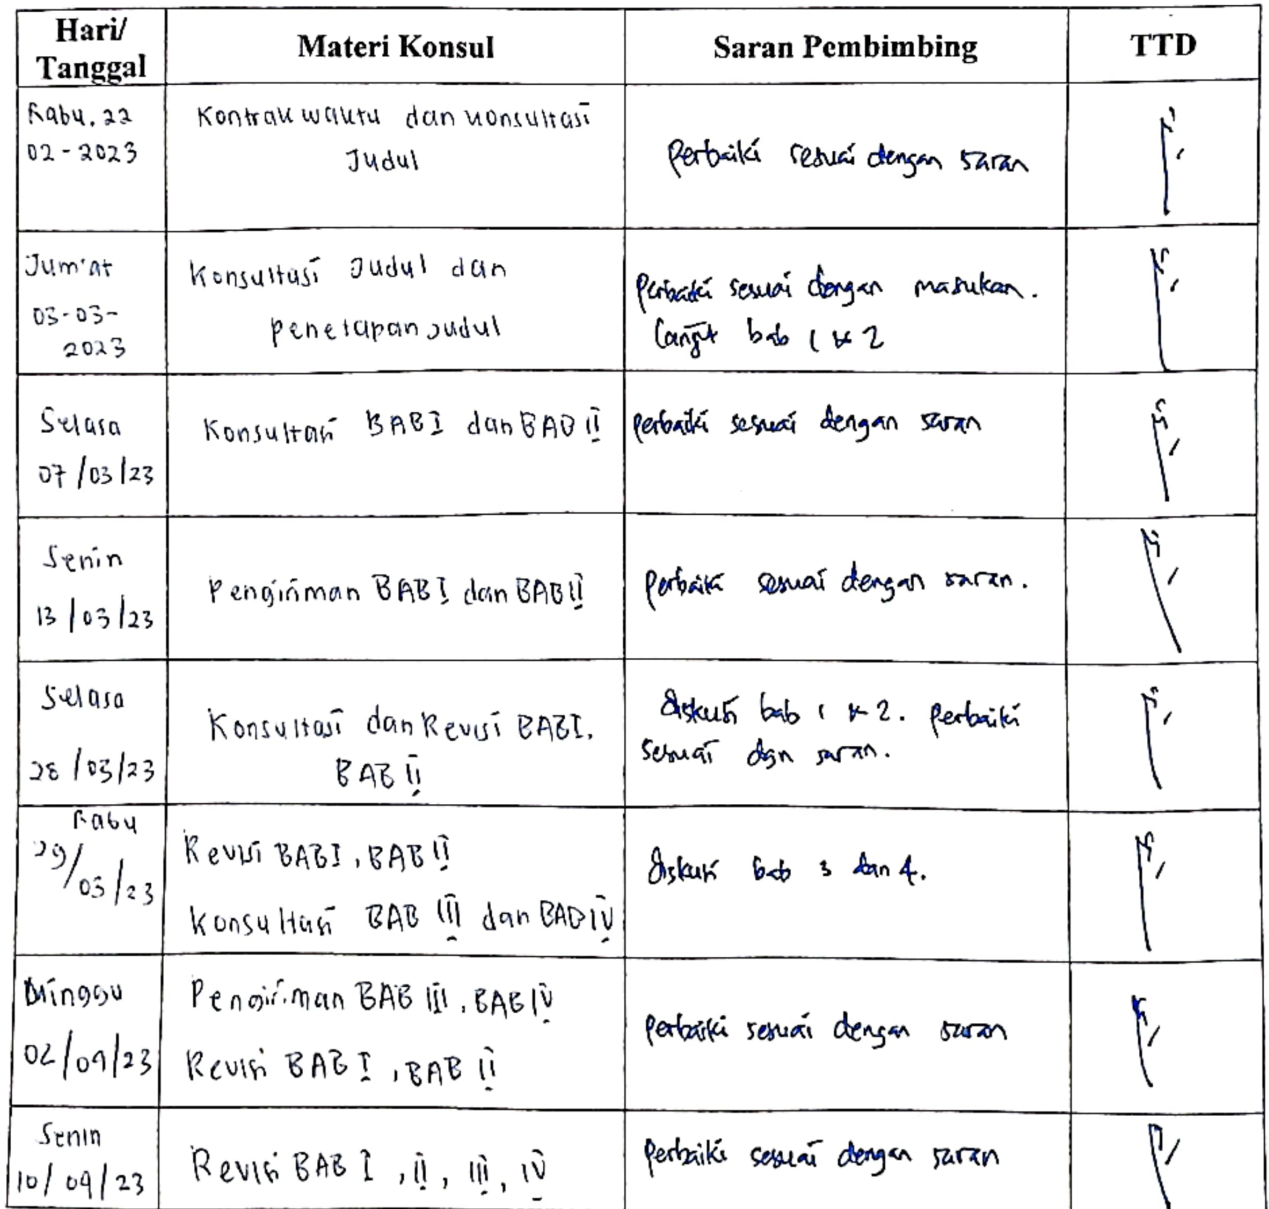 Hari/
Tanggal
Materi Konsul
Saran Pembimbing
TTD
Rabu, 22
02-2023
Kontrak waktu dan konsultasi
Judul
Perbaiki sesuai dengan saran
Jum'at
03-03-
2023
Konsultasi Judul dan
Penetapan Judul
Perbaiki sesuai dengan masukan.
Lanjut bab 1 & 2
Selasa
07/03/23
Konsultasi BAB I dan BAB II
Perbaiki sesuai dengan saran
Senin
13/03/23
Pengiriman BAB I dan BAB II
Perbaiki sesuai dengan saran.
Selasa
28/03/23
Konsultasi dan Revisi BAB I,
BAB II
diskusi bab 1 & 2. Perbaiki
sesuai dgn saran.
Rabu
29/03/23
Revisi BAB I, BAB II
Konsultasi BAB III dan BAB IV
diskusi bab 3 dan 4.
Minggu
02/04/23
Pengiriman BAB III, BAB IV
Revisi BAB I, BAB II
Perbaiki sesuai dengan saran
Senin
10/04/23
Revisi BAB I, II, III, IV
Perbaiki sesuai dengan saran